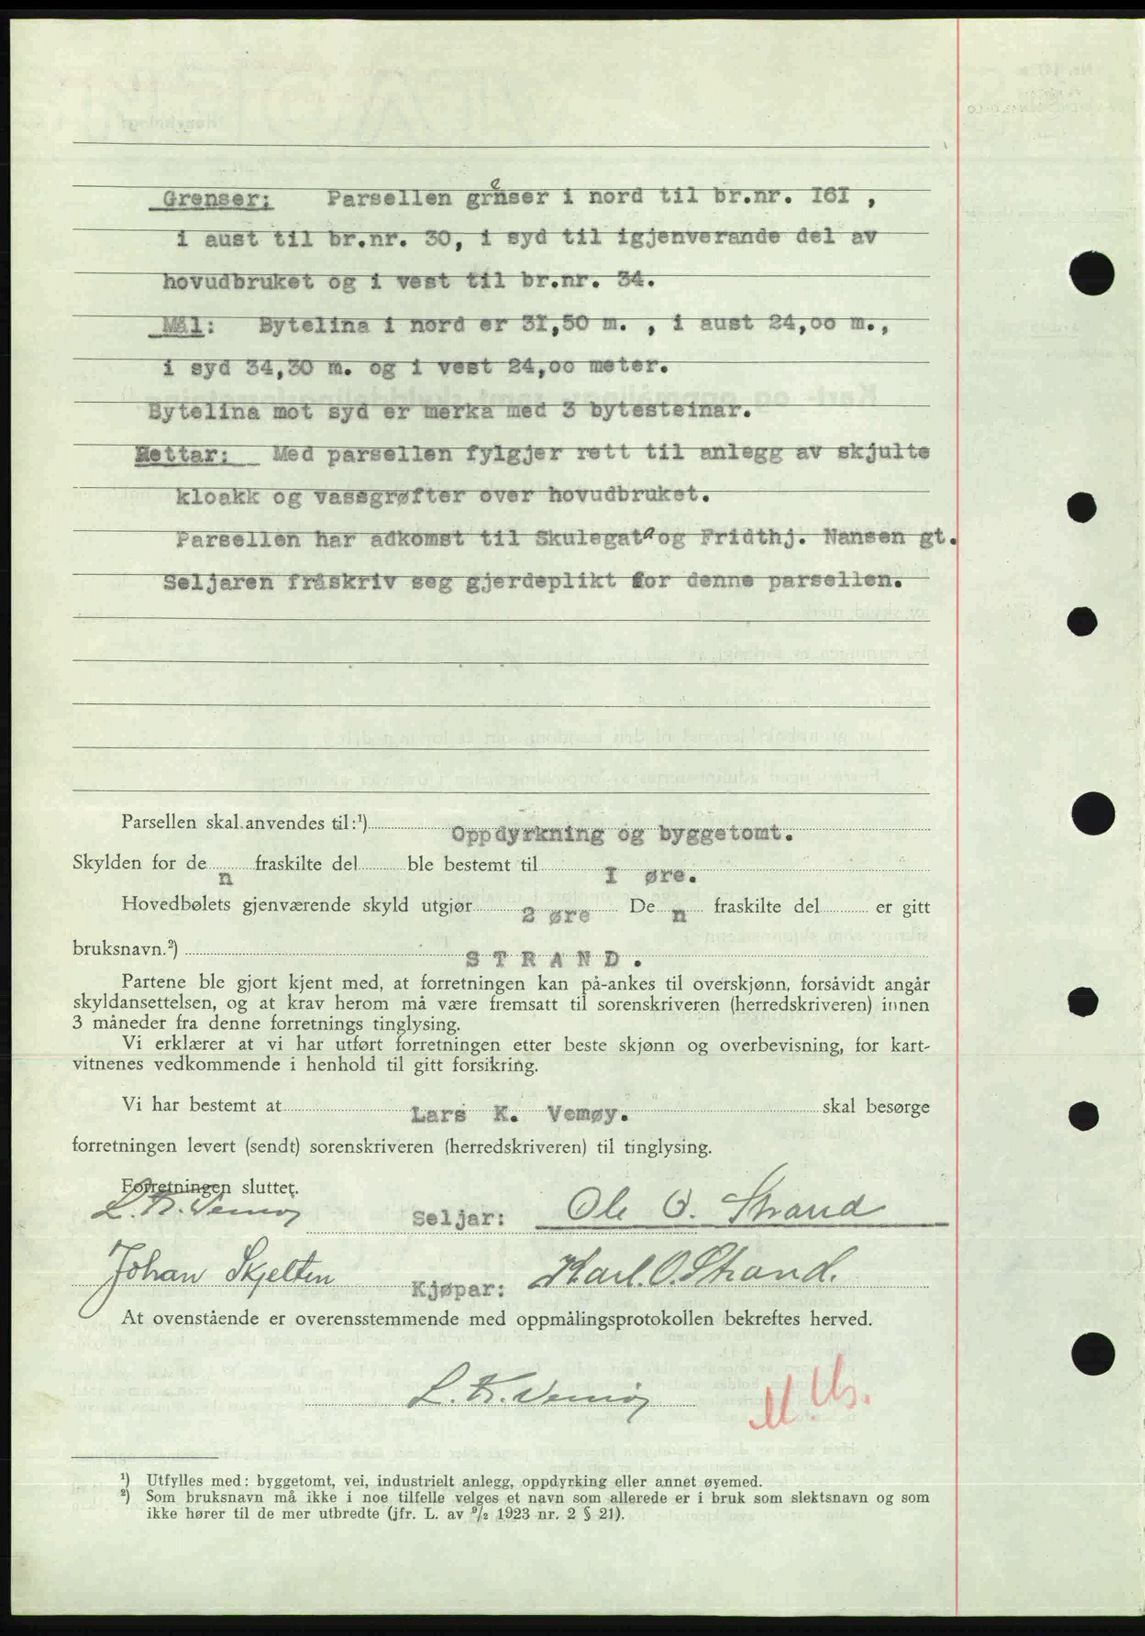 Grenser: Parsellen grenser i nord til br.nr. I6I ,
i aust til br.nr. 30, i syd til igjenverande del av
hovudbruket og i vest til br.nr. 34.
Mål: Bytelina i nord er 3I,50 m. , i aust 24,oo m.,
i syd 34,30 m. og i vest 24,oo meter.
Bytelina mot syd er merka med 3 bytesteinar.
Rettar: Med parsellen fylgjer rett til anlegg av skjulte
kloakk og vassgrøfter over hovudbruket.
Parsellen har adkomst til Skulegata og Fridthj. Nansen gt.
Seljaren fråskriv seg gjerdeplikt for denne parsellen.
Parsellen skal anvendes til:¹) Oppdyrkning og byggetomt.
Skylden for den fraskilte del ble bestemt til I øre.
Hovedbølets gjenværende skyld utgjør 2 øre Den fraskilte del er gitt
bruksnavn.²) STRAND.
Partene ble gjort kjent med, at forretningen kan på-ankes til overskjønn, forsåvidt angår
skyldansettelsen, og at krav herom må være fremsatt til sorenskriveren (herredskriveren) innen
3 måneder fra denne forretnings tinglysing.
Vi erklærer at vi har utført forretningen etter beste skjønn og overbevisning, for kart-
vitnenes vedkommende i henhold til gitt forsikring.
Vi har bestemt at Lars K. Vemøy. skal besørge
forretningen levert (sendt) sorenskriveren (herredskriveren) til tinglysing.
Forretningen sluttet.
L. Kr. Vemøy Seljar: Ole O. Strand
Johan Skjelten Kjøpar: Karl. O. Strand.
At ovenstående er overensstemmende med oppmålingsprotokollen bekreftes herved.
L. Kr. Vemøy
¹) Utfylles med: byggetomt, vei, industrielt anlegg, oppdyrking eller annet øyemed.
²) Som bruksnavn må ikke i noe tilfelle velges et navn som allerede er i bruk som slektsnavn og som
ikke hører til de mer utbredte (jfr. L. av ⁹/₂ 1923 nr. 2 § 21).